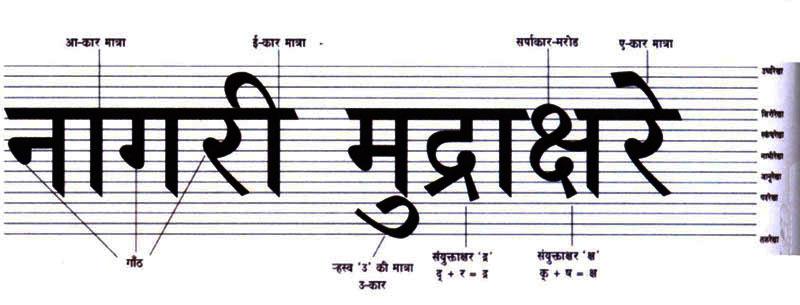 आ-कार मात्रा ई-कार मात्रा सर्पाकार-मरोड ए-कार मात्रा
ऊर्ध्वरेखा
शिरोरेखा
स्कंधरेखा
नाभीरेखा
जानुरेखा
पदरेखा
तलरेखा
नागरी मुद्राक्षरे
गाँठ
ऱ्हस्व 'उ' की मात्रा
उ-कार
संयुक्ताक्षर 'द्र'
द् + र = द्र
संयुक्ताक्षर 'क्ष'
क् + ष = क्ष